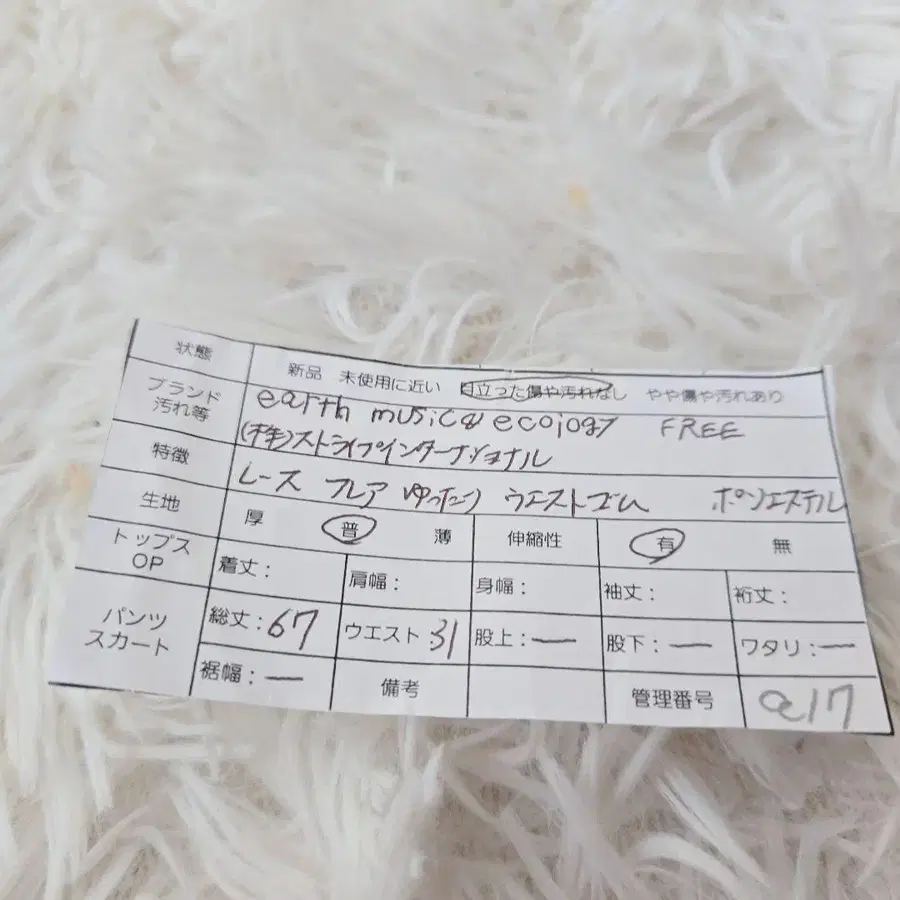 状態 新品 未使用に近い 目立った傷や汚れなし やや傷や汚れあり
ブランド 汚れ等 earth music & ecology FREE
(株)ストライプインターナショナル
特徴 レース フレア ゆったり ウエストゴム ポリエステル
生地 厚 普 薄 伸縮性 有 無
トップス OP 着丈: 肩幅: 身幅: 袖丈: 裄丈:
パンツ スカート 総丈:67 ウエスト:31 股上:ー 股下:ー ワタリ:ー
裾幅:ー 備考 管理番号 a17